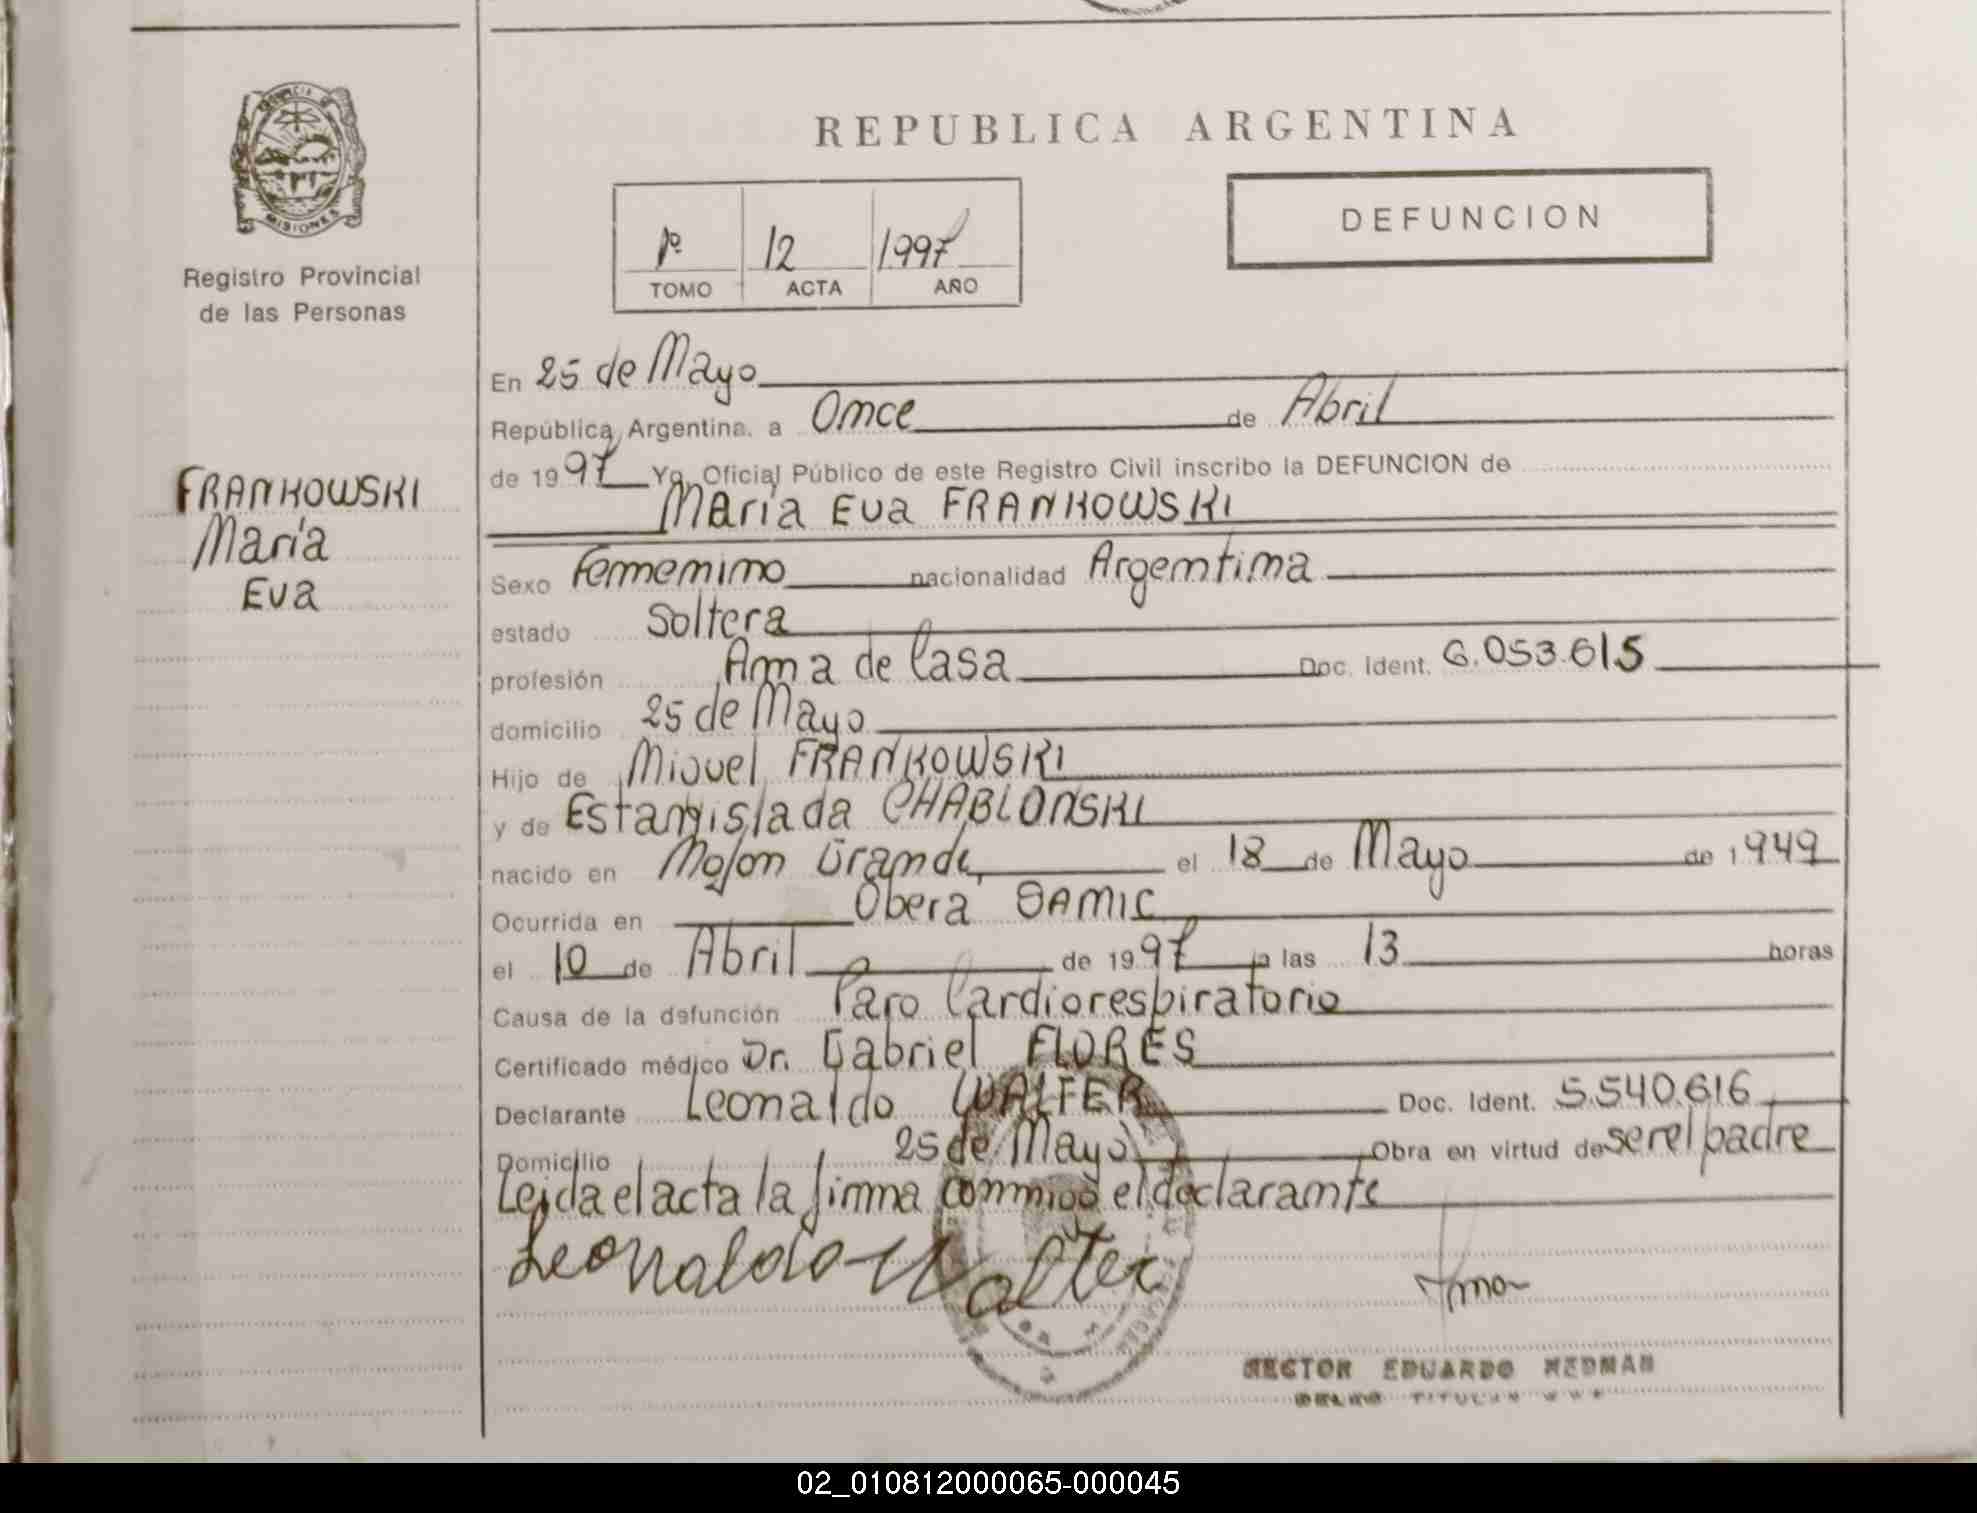 REPUBLICA ARGENTINA
PROVINCIA DE
MISIONES
Registro Provincial
de las Personas
1º 12 1997
TOMO ACTA AÑO
DEFUNCION
FRANKOWSKI
María
Eva
En 25 de Mayo
República Argentina, a Once de Abril
de 1997 Yo, Oficial Público de este Registro Civil inscribo la DEFUNCION de
María Eva FRANKOWSKI
Sexo Femenino nacionalidad Argentina
estado Soltera
profesión Ama de Casa Doc. Ident. 6.053.615
domicilio 25 de Mayo
Hijo de Miguel FRANKOWSKI
y de Estanislada CHABLONSKI
nacido en Mojon Grande, el 18 de Mayo de 1949
Ocurrida en Obera SAMIC
el 10 de Abril de 1997 a las 13 horas
Causa de la defunción Paro Cardiorespiratorio
Certificado médico Dr. Gabriel FLORES
Declarante Leonaldo WALTER Doc. Ident. 5.540.616
Domicilio 25 de Mayo Obra en virtud de ser el padre
Leida el acta la firma conmigo el declarante
Leonaldo Walter
HECTOR EDUARDO
TITULAR
02_010812000065-000045